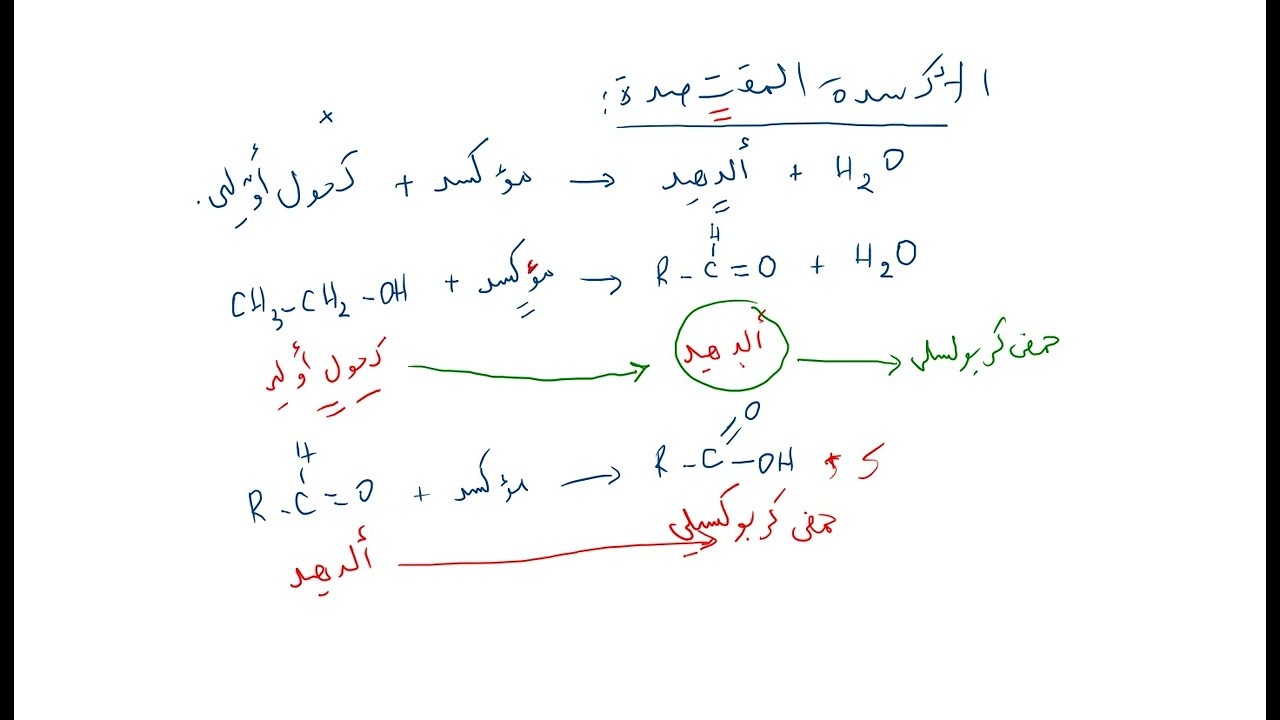 الأكسدة المقتصدة:
كحول أولي + مؤكسد → ألدهيد + H2O
CH3-CH2-OH + مؤكسد → R-C=O + H2O
H
كحول أولي → ألدهيد → حمض كربوكسيلي
H O
R-C=O + مؤكسد → R-C-OH
ألدهيد → حمض كربوكسيلي